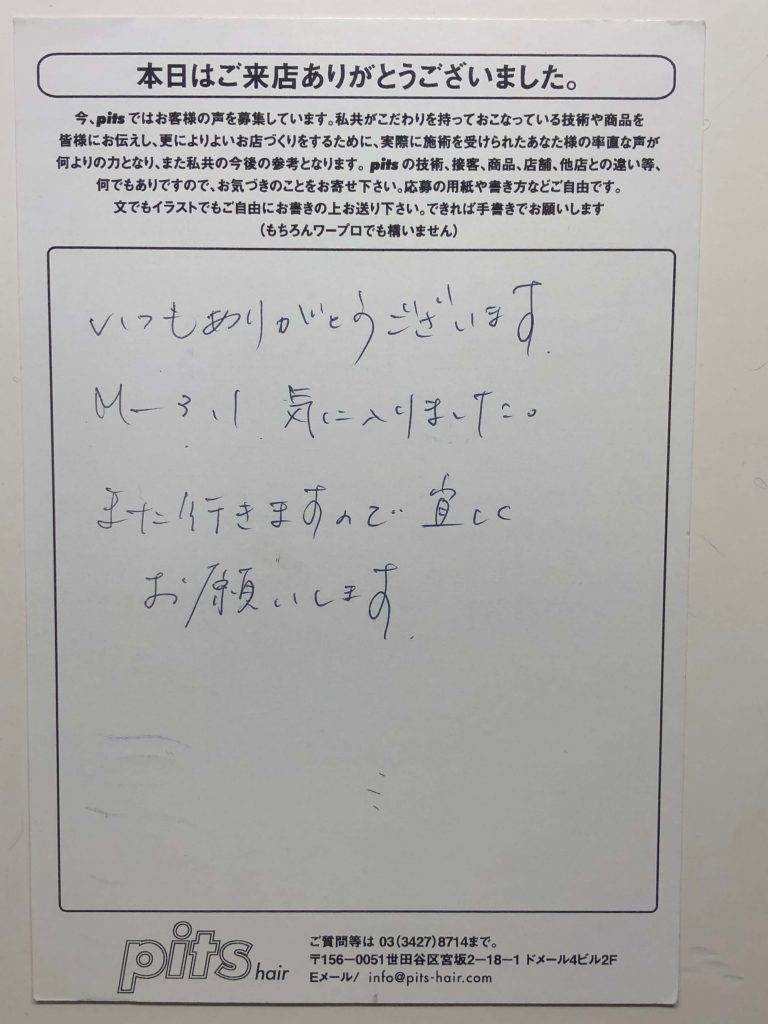 本日はご来店ありがとうございました。
今、pitsではお客様の声を募集しています。私共がこだわりを持っておこなっている技術や商品を
皆様にお伝えし、更によりよいお店づくりをするために、実際に施術を受けられたあなた様の率直な声が
何よりの力となり、また私共の今後の参考となります。pitsの技術、接客、商品、店舗、他店との違い等、
何でもありですので、お気づきのことをお寄せ下さい。応募の用紙や書き方などご自由です。
文でもイラストでもご自由にお書きの上お送り下さい。できれば手書きでお願いします
(もちろんワープロでも構いません)
いつもありがとうございます
気に入りました。
また行きますので宜しく
お願いします
pits hair
ご質問等は 03(3427)8714まで。
〒156-0051世田谷区宮坂2-18-1 ドメール4ビル2F
Eメール/ info@pits-hair.com